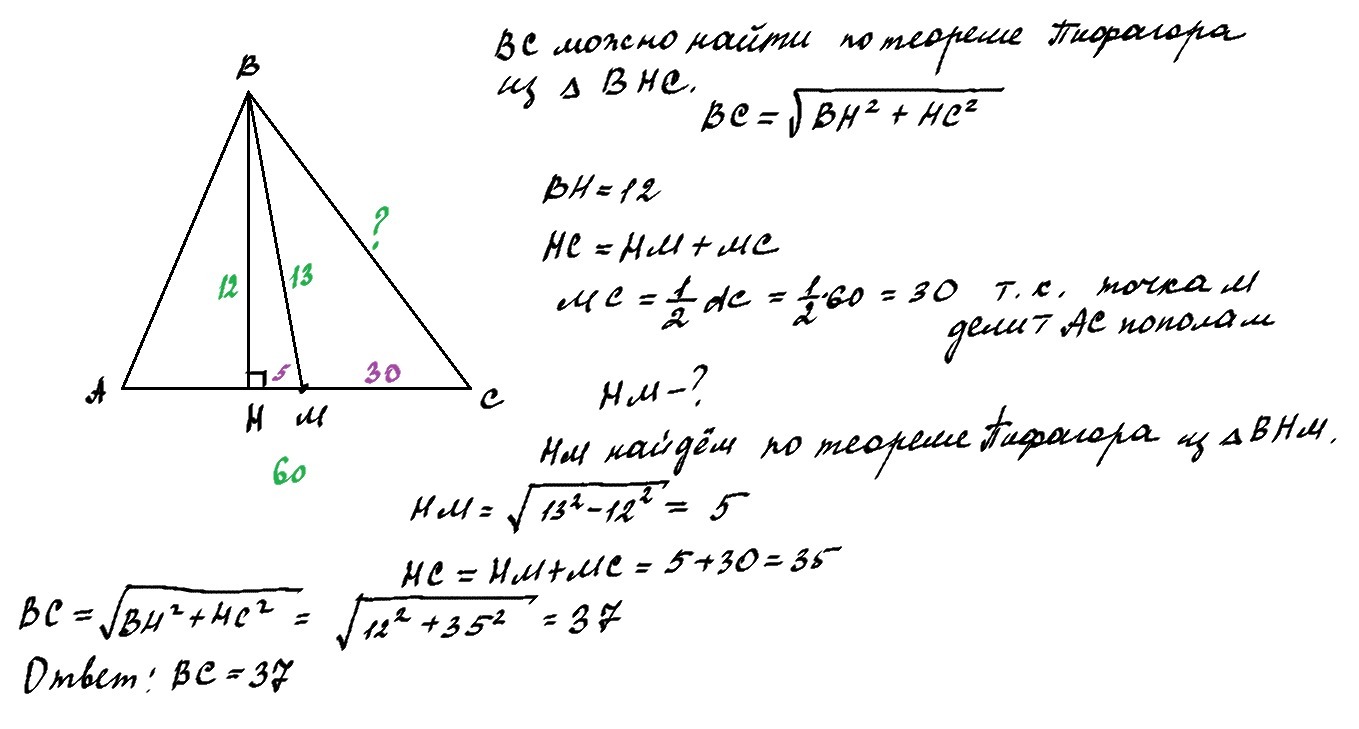 BC можно найти по теореме Пифагора
из Δ BHC.
BC = √(BH² + HC²)
B
BH = 12
?
HC = HM + MC
12
13
MC = 1/2 AC = 1/2·60 = 30 т.к. точка M
делит AC пополам
5
30
A
H
M
C
HM - ?
HM найдём по теореме Пифагора из Δ BHM.
60
HM = √(13² - 12²) = 5
HC = HM + MC = 5 + 30 = 35
BC = √(BH² + HC²) = √(12² + 35²) = 37
Ответ: BC = 37